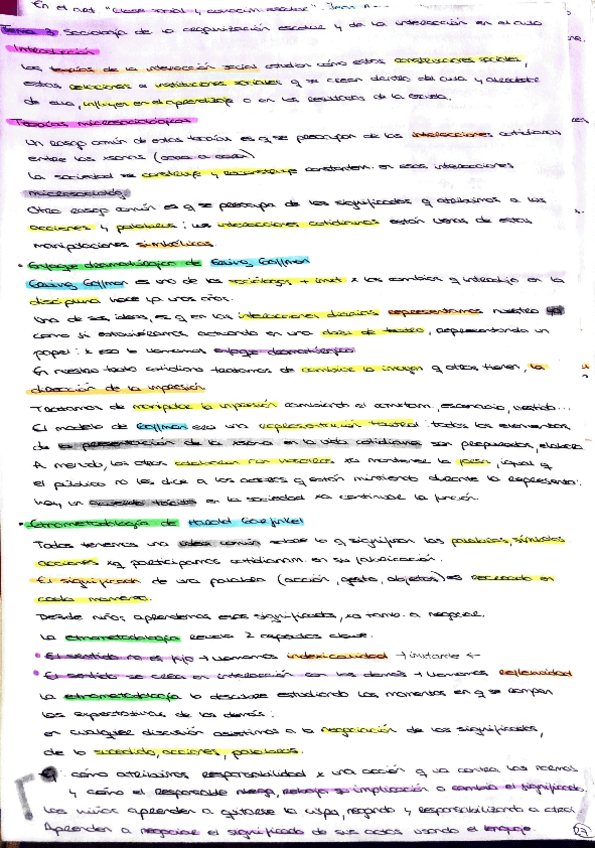 En el art. "Clase social y conocim. escolar".
Tema 3 Sociología de la organización escolar y de la interacción en el aula
Introducción
Las teorías de la interacción social estudian cómo estas construcciones sociales,
estas relaciones e instituciones sociales q se crean dentro del aula y alrededor
de ella, influyen en el aprendizaje o en los resultados de la escuela.
Teorías microsociológicas
Un rasgo común de estas teorías es q se preocupan de las interacciones cotidianas
entre las xsonas (cara a cara)
La sociedad se construye y reconstruye constantem. en esas interacciones
microsociológ.
Otro rasgo común es q se preocupa de los significados q atribuimos a las
acciones y palabras: las interacciones cotidianas están llenas de estas
manipulaciones simbólicas.
• Enfoque dramatúrgico de Erving Goffman
Erving Goffman es uno de los sociólogos + imxt x los cambios q introdujo en la
disciplina hace ya unos años.
Una de sus ideas, es q en las interacciones diarias representamos nuestro yo
como si estuviéramos actuando en una obra de teatro, representando un
papel: x eso lo llamamos enfoque dramatúrgico
En nuestro trato cotidiano tratamos de cambiar la imagen q otros tienen, la
dirección de la impresión
Tratamos de manipular la impresión cambiando el comxtam, escenario, vestido...
El modelo de Goffman es una representación teatral: todos los elementos
de la presentación de la xsona en la vida cotidiana son preparados,
A menudo, los otros colaboran con nosotros xa mantener la igual q
el público no les dice a los actores q están mintiendo durante la representa:
hay un acuerdo tácito en la sociedad xa continuar la función.
• Etnometodología de Harold Garfinkel
Todos tenemos una idea común sobre lo q significan las palabras, símbolos
acciones xq participamos cotidianam. en su fabricación.
El significado de una palabra (acción, gesto, objetos) es recreado en
cada momento.
Desde niños aprendemos esos significados, xa tanto a negociar.
La etnometodología revela 2 aspectos clave:
• El sentido no es fijo → llamamos indexicalidad
• El sentido se crea en interacción con los demás → llamamos reflexividad
La etnometodología lo descubre estudiando los momentos en q se rompen
las expectativas de los demás:
en cualquier discusión asistimos a la negociación de los significados,
de lo sucedido, acciones, palabras.
Ej: cómo atribuimos responsabilidad x una acción q va contra las normas
y cómo el responsable niega, rebaja su implicación o cambia el significado.
Los niños aprenden a quitarse la culpa, negando y responsabilizando a otros.
Aprenden a negociar el significado de sus actos usando el lenguaje.
27